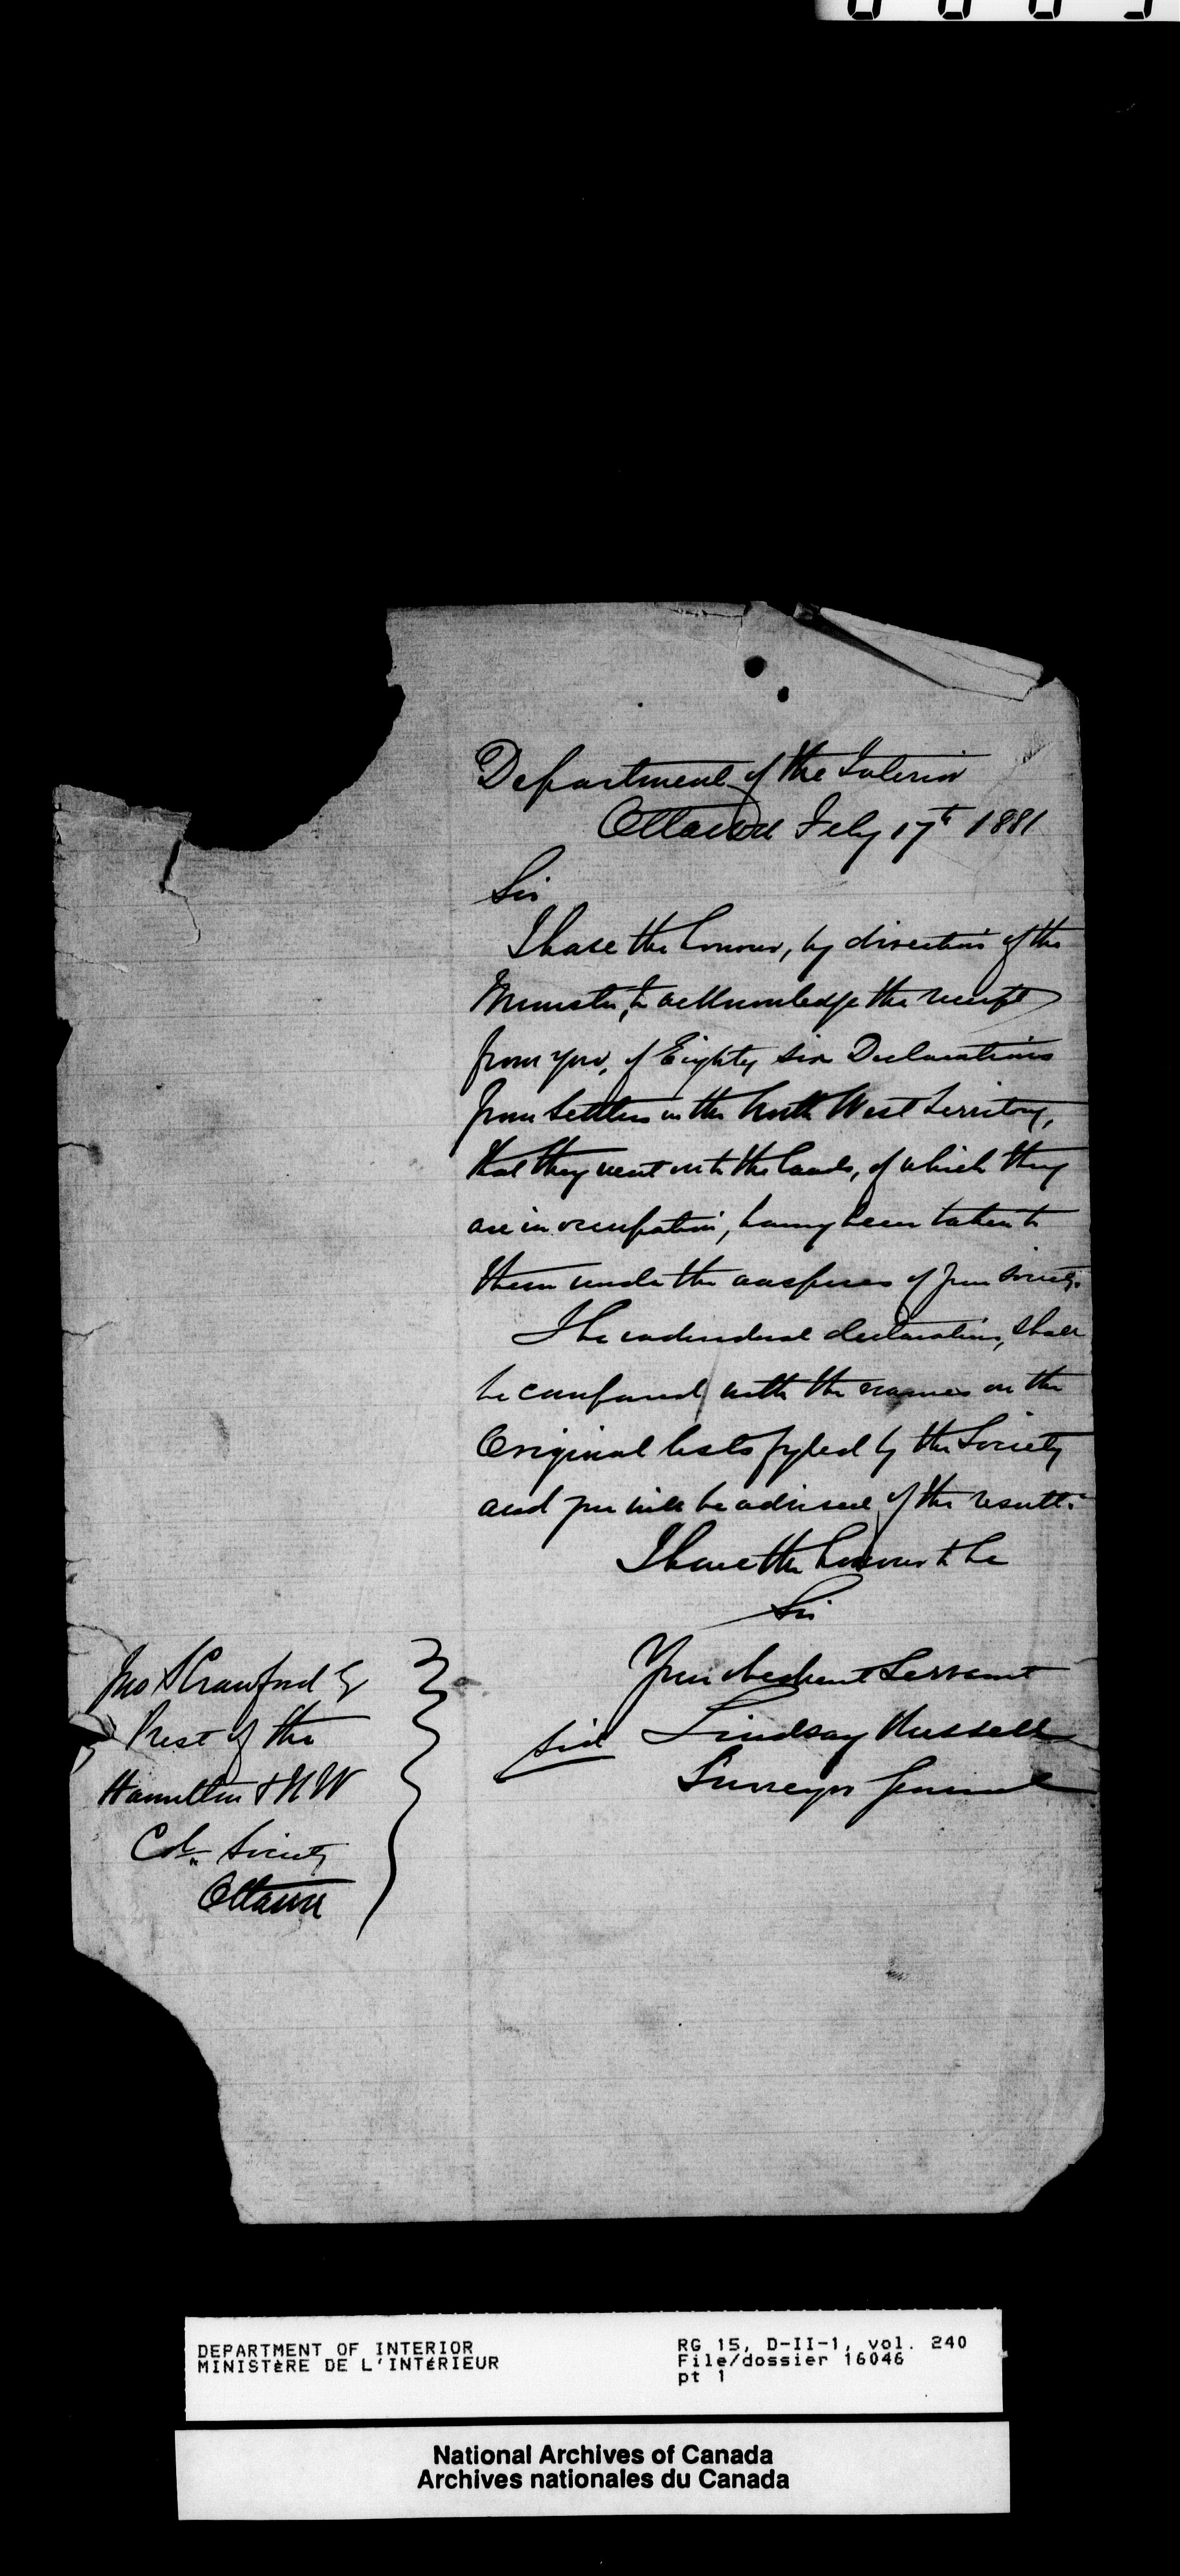 Department of the Interior
Ottawa Feby 17th 1881
Sir
I have the honour, by direction of the
Minister, to acknowledge the receipt
from you, of Eighty six Declarations
from Settlers in the North West Territory,
that they went on to the lands, of which they
are in occupation, having been taken to
them under the auspices of your Society.
The individual declarations, shall
be compared with the names on the
Original lists fyled by the Society
and you will be advised of the result.
I have the honour to be
Sir
Your obedient Servant
Sgd Lindsay Russell
Surveyor General
Jno S Crawford Eq
Prest of the
Hamilton & N W
Coln Society
Ottawa
DEPARTMENT OF INTERIOR
MINISTÈRE DE L'INTÉRIEUR
RG 15, D-II-1, vol. 240
File/dossier 16046
pt 1
National Archives of Canada
Archives nationales du Canada